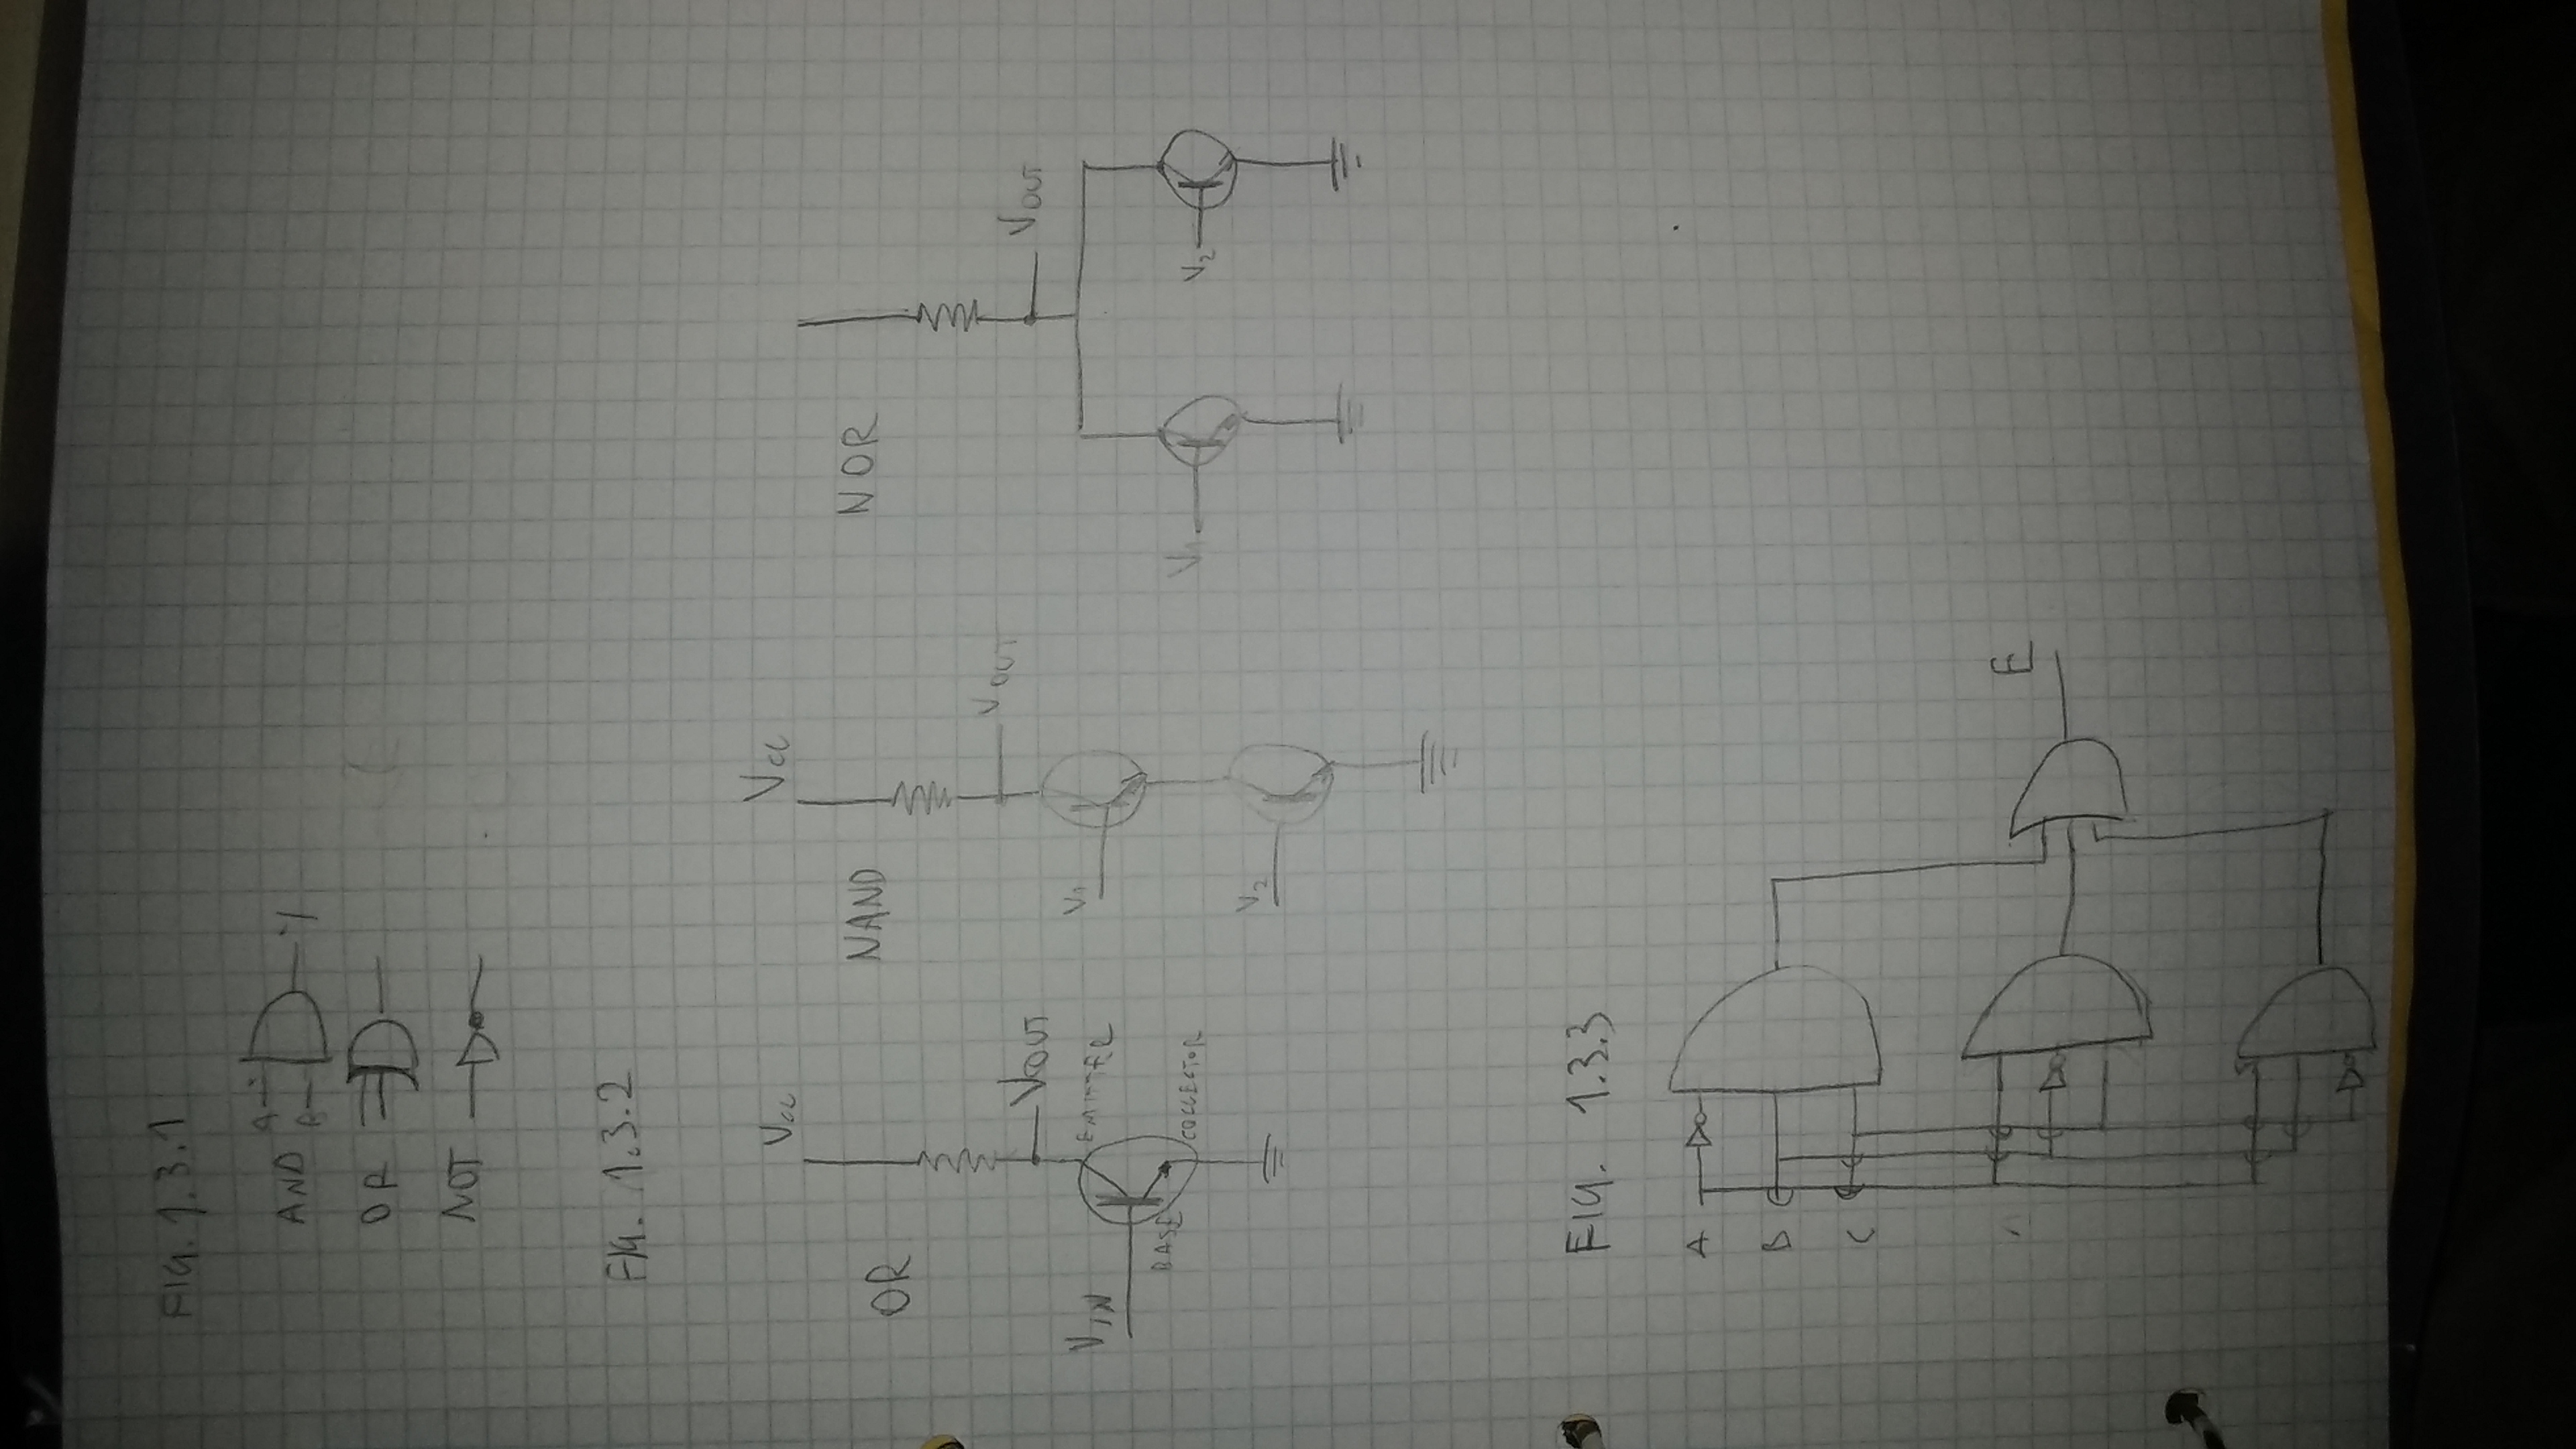 FIG. 1.3.1
AND A B Y
OR
NOT
FIG. 1.3.2
OR Vcc VOUT VIN EMITTER BASE COLLECTOR
NAND Vcc VOUT V1 V2
NOR VOUT V1 V2
FIG. 1.3.3
A
B
C
E